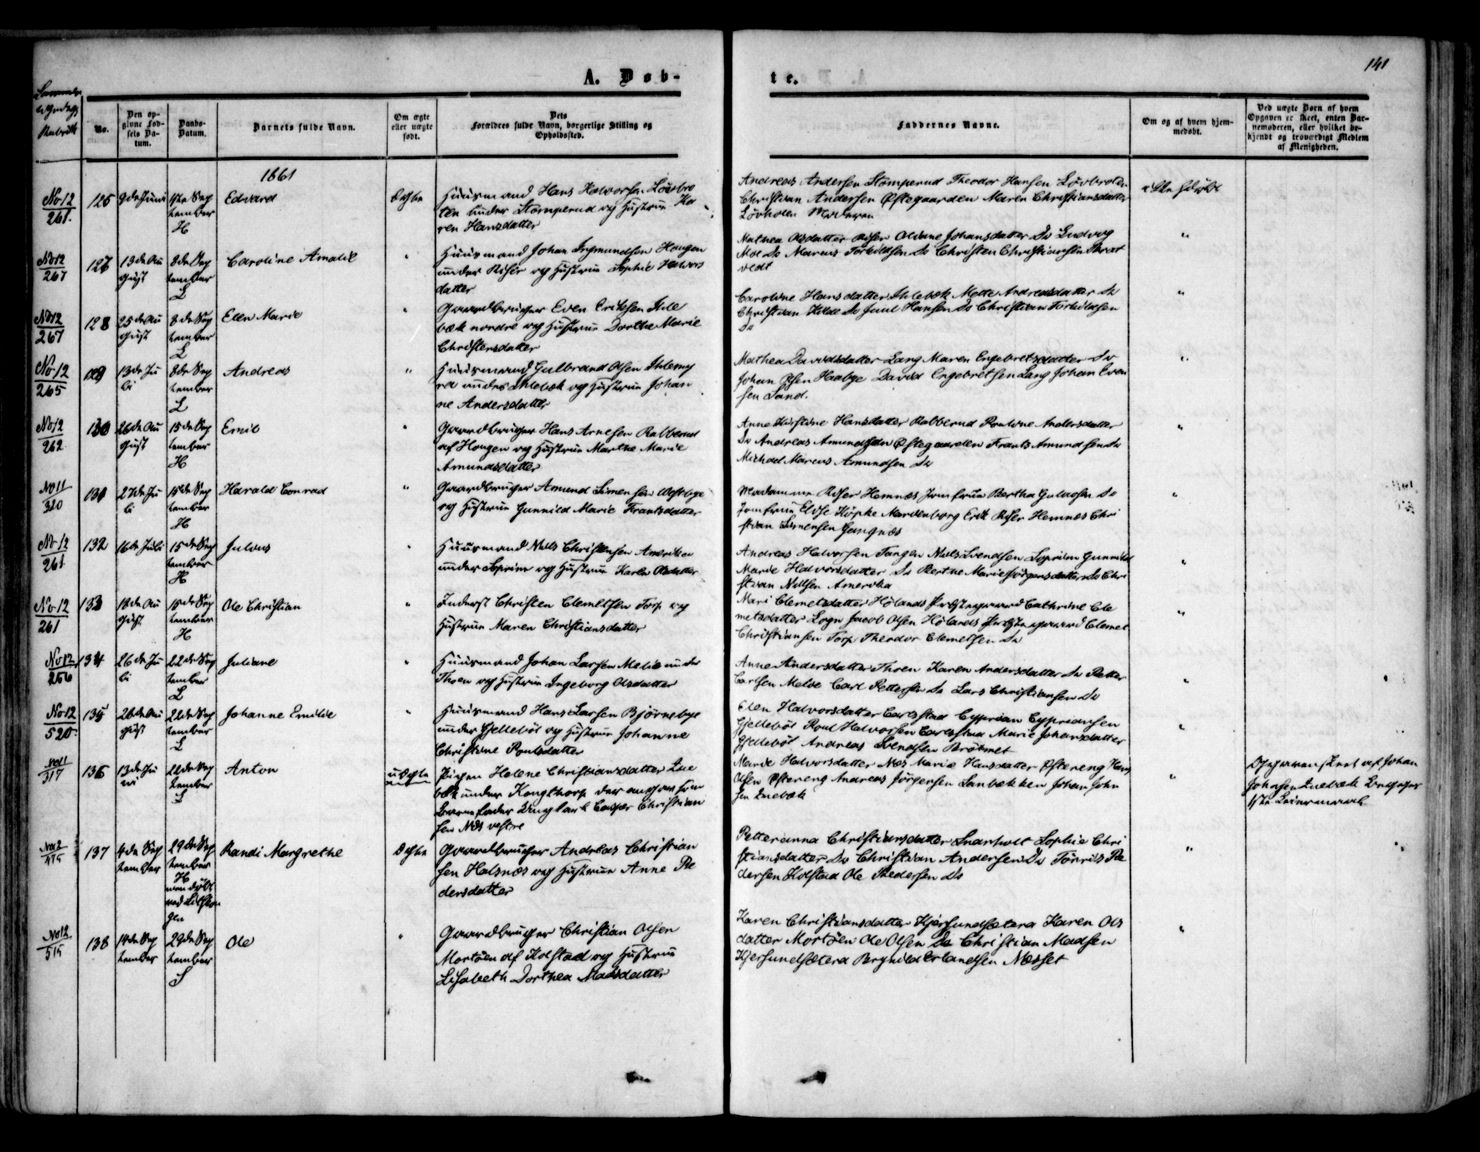 A. Døb-
te.
141
No.
Den opgivne Fødsels Datum.
Daabs-Datum.
Barnets fulde Navn.
Om ægte eller uægte født.
Dets
Forældres fulde Navn, borgerlige Stilling og
Opholdssted.
Faddernes Navne.
Om og af hvem hjem-
medøbt.
Ved uægte Børn af hvem
Opgaven er skeet, enten Bar-
nemoderen, eller hvilket be-
kjendt og troværdigt Medlem
af Menigheden.
1861
No 12
261.
125
9de Juni
Sep
tember
H
Edvard
Ægte
Huusmand Hans Halvorsen Løvbro
ten under Stomperud og Hustrue Ka
ren Hansdatter
Andreas Andersen Stomperud Theodor Hansen Løvbroten
Christian Andersen Østegaarden Maren Christiansdatter
Løvholen Moderen
No 12
267
126
13de Au
gust
8de Sep
tember
L
Caroline Amalie
Huusmand Johan Sigmundsen Haugen
under Riser og Hustrue Sophie Halvors
datter
Mathea Olsdatter Riser Oldine Johansdatter Do Ludvig
Do Marcus Torkildsen Do Christen Christiansen
No 12
267
128
25de Au
gust
8de Sep
tember
L
Ellen Marie
Gaardbruger Even Eriksen Ihle
bæk nordre og Hustrue Dorthe Marie
Christensdatter
Caroline Hansdatter Ihlebæk Mette Andreasdatter Do
Christian Do Juul Hansen Do Christian Torkildsen
Do
No 12
265
13de Ju
li
8de Sep
tember
L
Andreas
Huusmand Gulbrand Olsen Ihlemy
ra under Ihlebæk og Hustrue Johan
ne Andersdatter
Mathea Davidsdatter Lang Maren Engebretsdatter Do
Johan Olsen Haabye David Engebretsen Lang Johan Even
sen Sand.
No 12
262
130
26de Au
gust
15de Sep
tember
H
Emil
Gaardbruger Hans Arnesen Rabberud
af Haugen og Hustrue Marthe Marie
Amundsdatter
Anne Kirstine Hansdatter Rabberud Pouline Andersdatter
Do Andreas Amundsen Østegaarden Frants Amundsen Do
Michael Marcus Amundsen Do
No 11
320
131
27de Ju
li
15de Sep
tember
H
Harald Conrad
Gaardbruger Amund Simensen Westbye
og Hustrue Gunnild Marie Frantsdatter
Madamme Riser Hemnes Jomfrue Bertha Do
Jomfrue Elise Køpke Mardenborg Erik Riser Hemnes Chri
stian Simensen
No 12
261
132
16de Juli
15de Sep
tember
H
Julius
Huusmand Niels Christensen Ameriken
under Soprim og Hustrue Karen Olsdatter
Andreas Halvorsen Tangen Niels Svendsen Soprim Gunnild
Marie Halvorsdatter Do Berthe Marie Jørgensdatter Do Chri
stian Nilsen Amerika
No 12
261
133
18de Au
gust
15de Sep
tember
H
Ole Christian
Inderst Christen Clemetsen Torp og
Hustrue Maren Christiansdatter
Mari Clemetsdatter Hølands Præstegaard Cathrine Cle
metsdatter Jacob Olsen Hølands Præstegaard Clemet
Christiansen Torp Theodor Clemetsen Do
No 12
256
134
26de Ju
li
22de Sep
tember
L
Juliane
Huusmand Johan Larsen Melie under
Thoen og Hustrue Ingeborg Olsdatter
Anne Andersdatter Karen Andersdatter Do Petter
Carlsen Melie Carl Pettersen Do Lars Christiansen Do
No 12
520
135
26de Au
gust
22de Sep
tember
L
Johanne Emilie
Huusmand Hans Larsen Bjørnsbye
under Gjellebøl og Hustrue Johanne
Christine Poulsdatter
Ellen Halvorsdatter Carlstad Cyprian Cypriansen
Gjellebøl Poul Halvorsen Carlstad Marie Johansdatter
Gjellebøl Andreas Svendsen Bråtnet
No 11
317
136
13de Ju
ni
22de Sep
tember
L
Anton
uægte
Pigen Helene Christiansdatter Lue
bæk under Kongthorp der angav som
Barnefader Ungkarl Casper Christian
sen Næs vestre
Marie Halvorsdatter Næs Marie Hansdatter Østereng Hans
Olsen Østereng Andreas Jørgensen Sanbækken Johan John
sen Luebæk
Johan
Johnsen Luebæk
No 2
515
137
4de Sep
tember
29de Sep
tember
H
Randi Margrethe
Ægte
Gaardbruger Andreas Christian
sen Halsnæs og Hustrue Anne Pe
dersdatter
Petterinna Christiansdatter Snarholt Sophie Chri
stiansdatter Do Christian Andersen Do Tønnis Pe
dersen Kolstad Ole Pedersen Do
No 12
515
138
14de Sep
tember
29de Sep
tember
S
Ole
Gaardbruger Christian Olsen
Mortsen af Kolstad og Hustrue
Lisabeth Dorthea Madsdatter
Karen Christiansdatter Kjersundsætera Karen Ols
datter Mortsen Ole Olsen Do Christian Madsen
Kjersundsætera Erlandsen Næsset